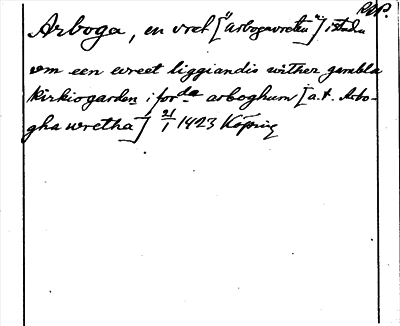 RAP.
Arboga, en vret ["arbogavreten"] i staden
om een wreet liggiandis wither gambla
kirkiogarden i forda arboghum [a.t. Arbo-
gha wretha] 21/1 1423 Köping